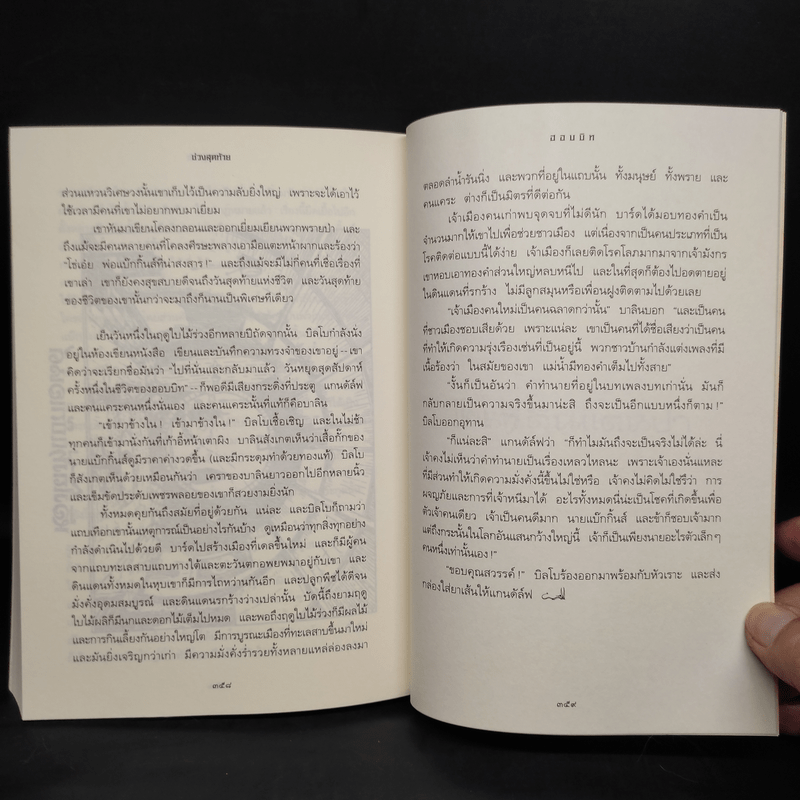 ช่วงสุดท้าย
ส่วนแหวนวิเศษวงนั้นเขาเก็บไว้เป็นความลับยิ่งใหญ่ เพราะจะได้เอาไว้
ใช้เวลามีคนที่เขาไม่อยากพบมาเยี่ยม
เขาหันมาเขียนโคลงกลอนและออกเยี่ยมเยียนพวกพรายป่า และ
ถึงแม้จะมีคนหลายคนที่โคลงศีรษะพลางเอามือแตะหน้าผากและร้องว่า
"โช่เอ๋ย พ่อแบ๊กกิ้นส์ที่น่าสงสาร!" และถึงแม้จะมีไม่กี่คนที่เชื่อเรื่องที่
เขาเล่า เขาก็ยังคงสุขสบายดีจนถึงวันสุดท้ายแห่งชีวิต และวันสุดท้าย
ของชีวิตของเขานั้นกว่าจะมาถึงก็นานเป็นพิเศษทีเดียว
เย็นวันหนึ่งในฤดูใบไม้ร่วงอีกหลายปีถัดจากนั้น บิลโบกำลังนั่ง
อยู่ในห้องเขียนหนังสือ เขียนและบันทึกความทรงจำของเขาอยู่ -- เขา
คิดว่าจะเรียกชื่อมันว่า "ไปที่นั่นและกลับมาแล้ว วันหยุดสุดสัปดาห์
ครั้งหนึ่งในชีวิตของฮอบบิท" -- ก็พอดีมีเสียงกระดิ่งที่ประตู แกนดัล์ฟ
และคนแคระคนหนึ่งนั่นเอง และคนแคระนั้นที่แท้ก็คือบาลิน
"เข้ามาข้างใน! เข้ามาข้างใน!" บิลโบเชื้อเชิญ และในไม่ช้า
ทุกคนก็เข้ามานั่งกันที่เก้าอี้หน้าเตาผิง บาลินสังเกตเห็นว่าเสื้อกั๊กของ
นายแบ๊กกิ้นส์ดูมีราคาค่างวดขึ้น (และมีกระดุมทำด้วยทองแท้) บิลโบ
ก็สังเกตเห็นด้วยเหมือนกันว่า เคราของบาลินยาวออกไปอีกหลายนิ้ว
และเข็มขัดประดับเพชรพลอยของเขาก็สวยงามยิ่งนัก
ทั้งหมดคุยกันถึงสมัยที่อยู่ด้วยกัน แน่ละ และบิลโบก็ถามว่า
แถบเทือกเขานั้นเหตุการณ์เป็นอย่างไรกันบ้าง ดูเหมือนว่าทุกสิ่งทุกอย่าง
กำลังดำเนินไปด้วยดี บาร์ดไปสร้างเมืองที่เดลขึ้นใหม่ และก็มีผู้คน
จากแถบทะเลสาบแถบทางใต้และตะวันตกอพยพมาอยู่กับเขา และ
ดินแดนทั้งหมดในหุบเขาก็มีการไถหว่านกันอีก และปลูกพืชได้ดีจน
มั่งคั่งอุดมสมบูรณ์ และดินแดนรกร้างว่างเปล่านั้น บัดนี้ถึงยามฤดู
ใบไม้ผลิก็มีนกและดอกไม้เต็มไปหมด และพอถึงฤดูใบไม้ร่วงก็มีผลไม้
และการกินเลี้ยงกันอย่างใหญ่โต มีการบูรณะเมืองที่ทะเลสาบขึ้นมาใหม่
และมันยิ่งเจริญกว่าเก่า มีความมั่งคั่งร่ำรวยทั้งหลายแหล่ล่องลงมา
๓๕๘
ฮอบบิท
ตลอดลำน้ำรันนิ่ง และพวกที่อยู่ในแถบนั้น ทั้งมนุษย์ ทั้งพราย และ
คนแคระ ต่างก็เป็นมิตรที่ดีต่อกัน
เจ้าเมืองคนเก่าพบจุดจบที่ไม่ดีนัก บาร์ดได้มอบทองคำเป็น
จำนวนมากให้เขาไปเพื่อช่วยชาวเมือง แต่เนื่องจากเป็นคนประเภทที่เป็น
โรคติดต่อแบบนี้ได้ง่าย เจ้าเมืองก็เลยติดโรคโลภมากมาจากเจ้ามังกร
เขาหอบเอาทองคำส่วนใหญ่หลบหนีไป และในที่สุดก็ต้องไปอดตายอยู่
ในดินแดนที่รกร้าง ไม่มีลูกสมุนหรือเพื่อนฝูงติดตามไปด้วยเลย
"เจ้าเมืองคนใหม่เป็นคนฉลาดกว่านั้น" บาลินบอก "และเป็นคน
ที่ชาวเมืองชอบเสียด้วย เพราะแน่ละ เขาเป็นคนที่ได้ชื่อเสียงว่าเป็นคน
ที่ทำให้เกิดความรุ่งเรืองเช่นที่เป็นอยู่นี้ พวกชาวบ้านกำลังแต่งเพลงที่มี
เนื้อร้องว่า ในสมัยของเขา แม่น้ำมีทองคำเต็มไปทั้งสาย"
"งั้นก็เป็นอันว่า คำทำนายที่อยู่ในบทเพลงบทเก่านั้น มันก็
กลับกลายเป็นความจริงขึ้นมาน่ะสิ ถึงจะเป็นอีกแบบหนึ่งก็ตาม!"
บิลโบออกอุทาน
"ก็แน่ละสิ" แกนดัล์ฟว่า "ก็ทำไมมันถึงจะเป็นจริงไม่ได้ล่ะ นี่
เจ้าคงไม่เห็นว่าคำทำนายเป็นเรื่องเหลวไหลนะ เพราะเจ้าเองนั่นแหละ
ที่มีส่วนทำให้เกิดความมั่งคั่งนี้ขึ้นไม่ใช่หรือ เจ้าคงไม่คิดไม่ใช่รึว่า การ
ผจญภัยและการที่เจ้าหนีมาได้ อะไรทั้งหมดนี่น่ะเป็นโชคที่เกิดขึ้นเพื่อ
ตัวเจ้าคนเดียว เจ้าเป็นคนดีมาก นายแบ๊กกิ้นส์ และข้าก็ชอบเจ้ามาก
แต่ถึงกระนั้นในโลกอันแสนกว้างใหญ่นี้ เจ้าก็เป็นเพียงนายอะไรตัวเล็กๆ
คนหนึ่งเท่านั้นเอง!"
"ขอบคุณสวรรค์!" บิลโบร้องออกมาพร้อมกับหัวเราะ และส่ง
กล่องใส่ยาเส้นให้แกนดัล์ฟ
๓๕๙